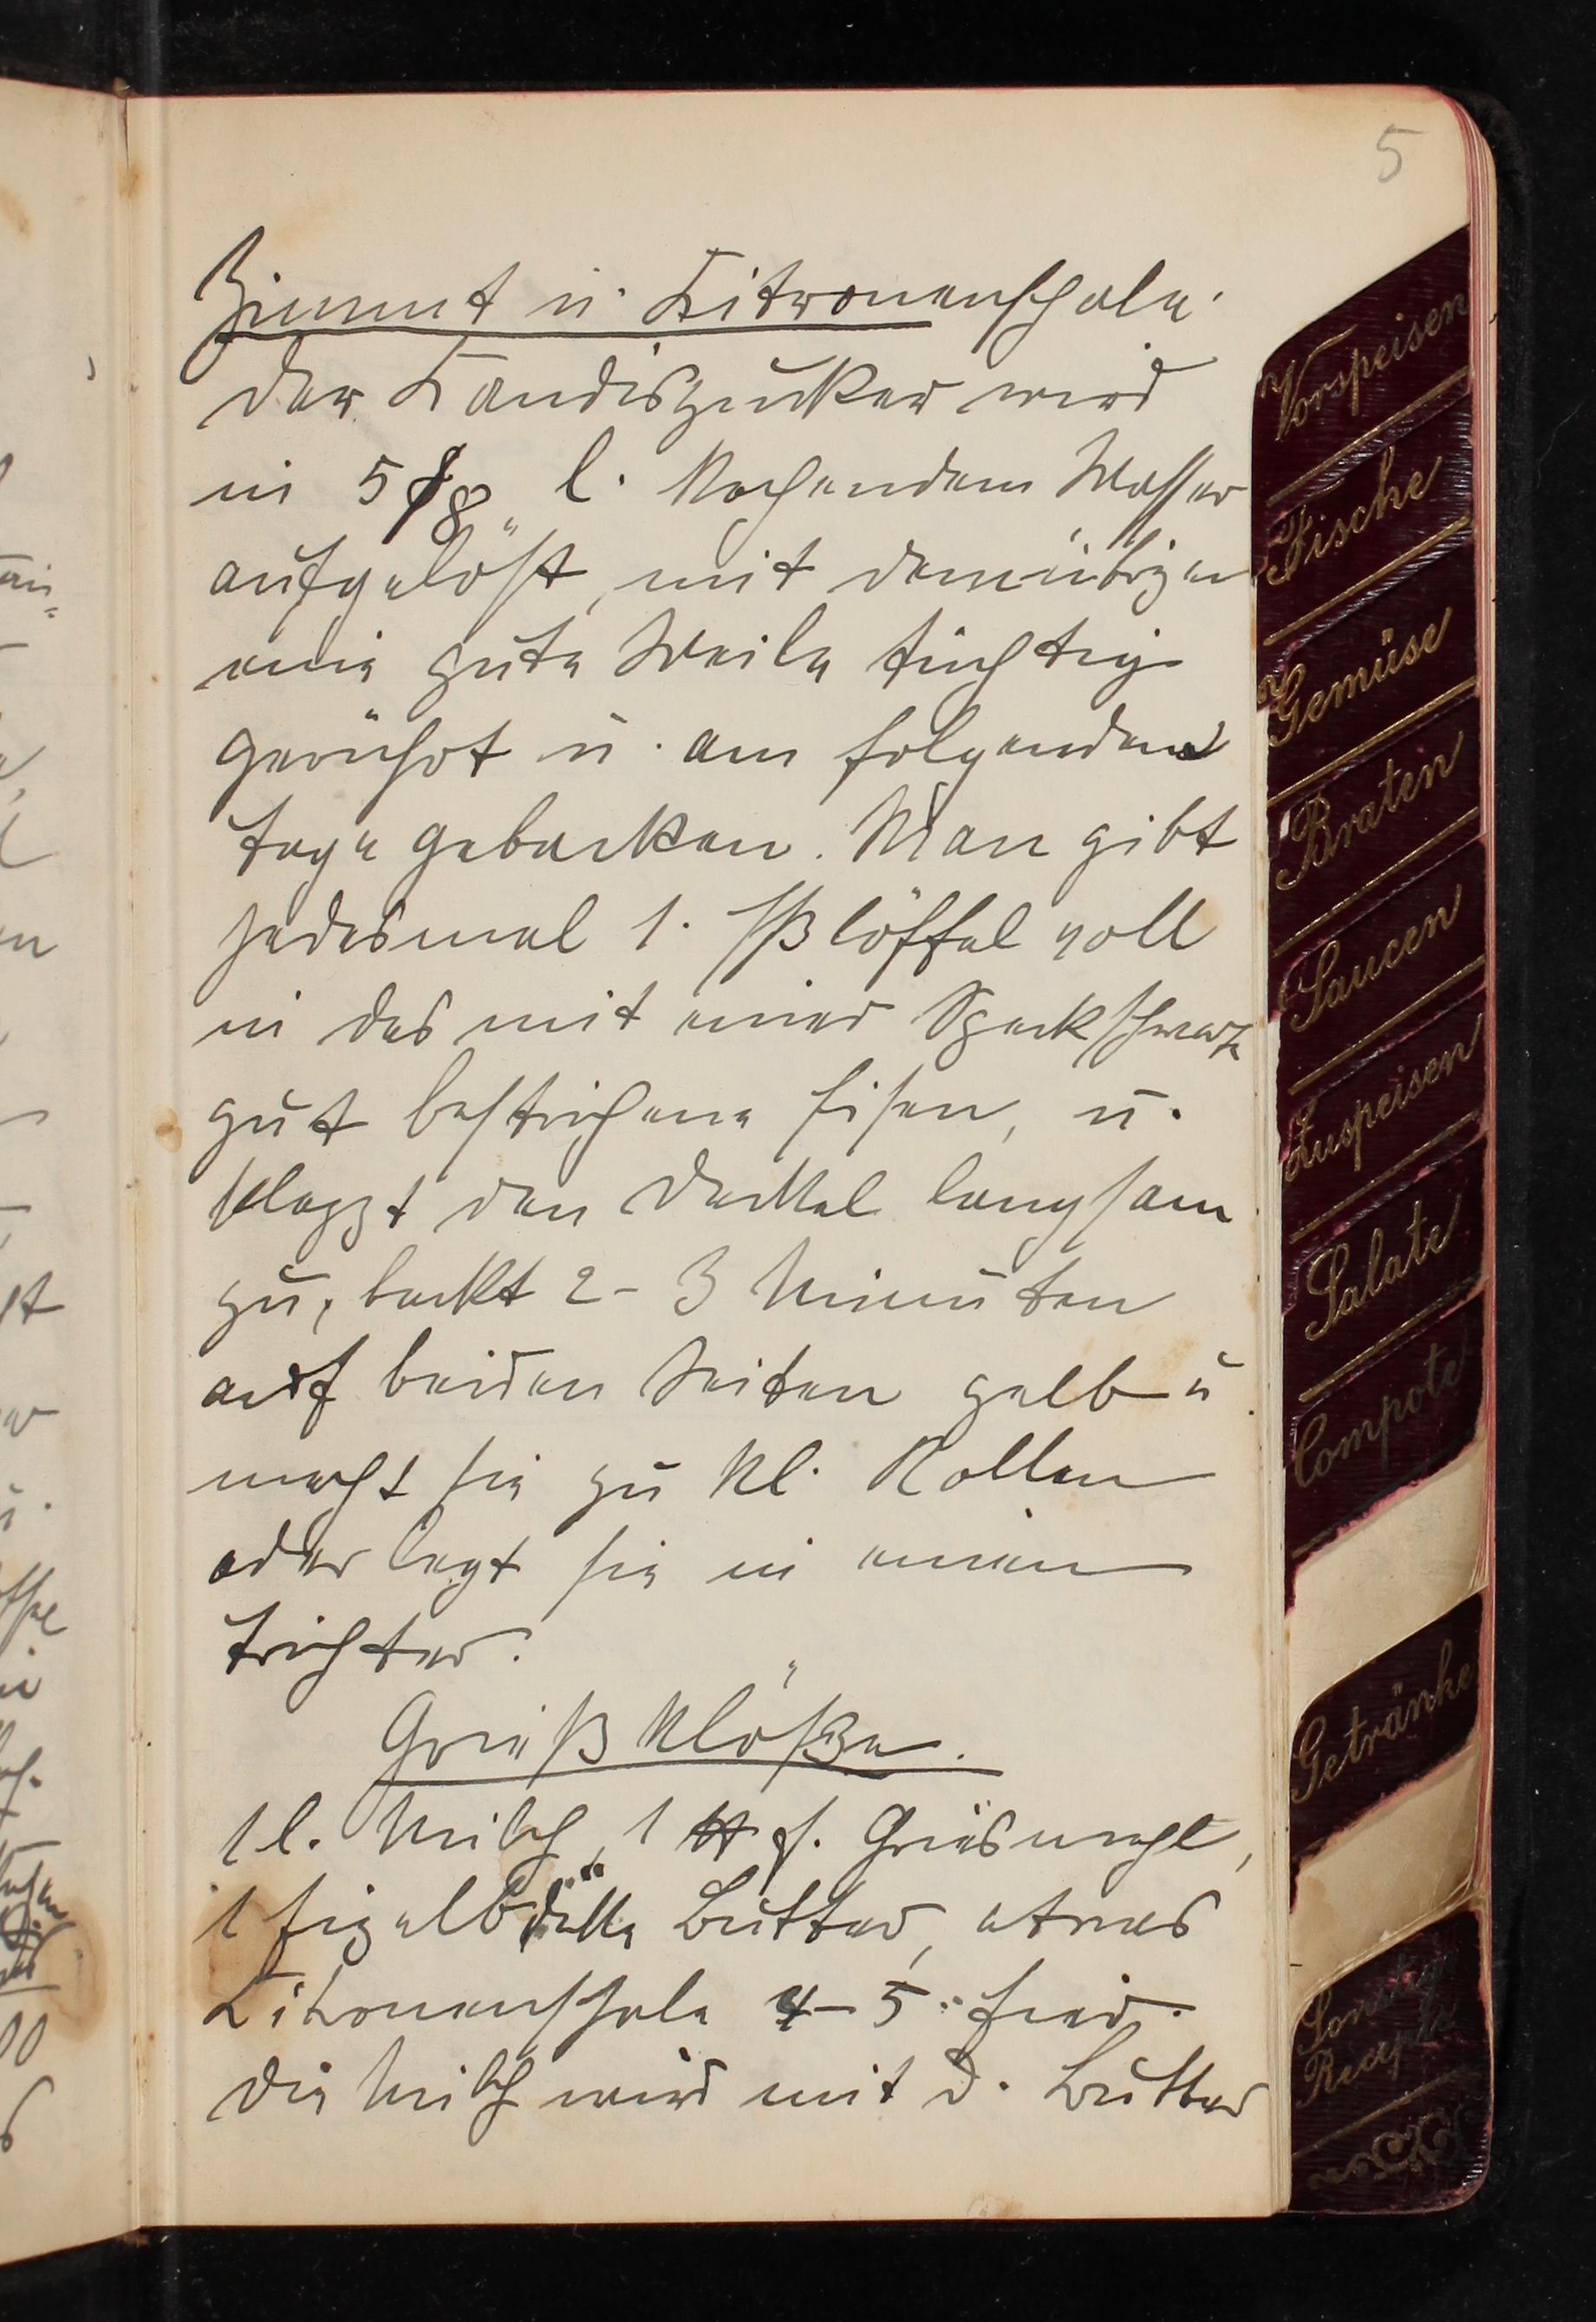 5
Zimmt u. Zitronenschale.
Der Kandiszucker wird
in 5/8 l. kochendem Wasser
aufgelöst, mit dem übrigen
eine gute Weile tüchtig
gerührt u. am folgenden
Tage gebacken. Man gibt
jedesmal 1. Eßlöffel voll
in das mit einer Speckschwarte
gut bestrichene Eisen, u.
klappt den Deckel langsam
zu, backt 2-3 Minuten
auf beiden Seiten gelb u
macht sie zu kl. Rollen
oder legt sie in einen
Trichter.
Grießklöße.
1 l. Milch, 1 ℔ f. Griesmehl,
1 Eigelbdicke Butter, etwas
Zitronenschale 4-5 Eier.
Die Milch wird mit d. Butter
Vorspeisen
Fische
Gemüse
Braten
Saucen
Zuspeisen
Salate
Compote
Getränke
Sonstige
Recepte